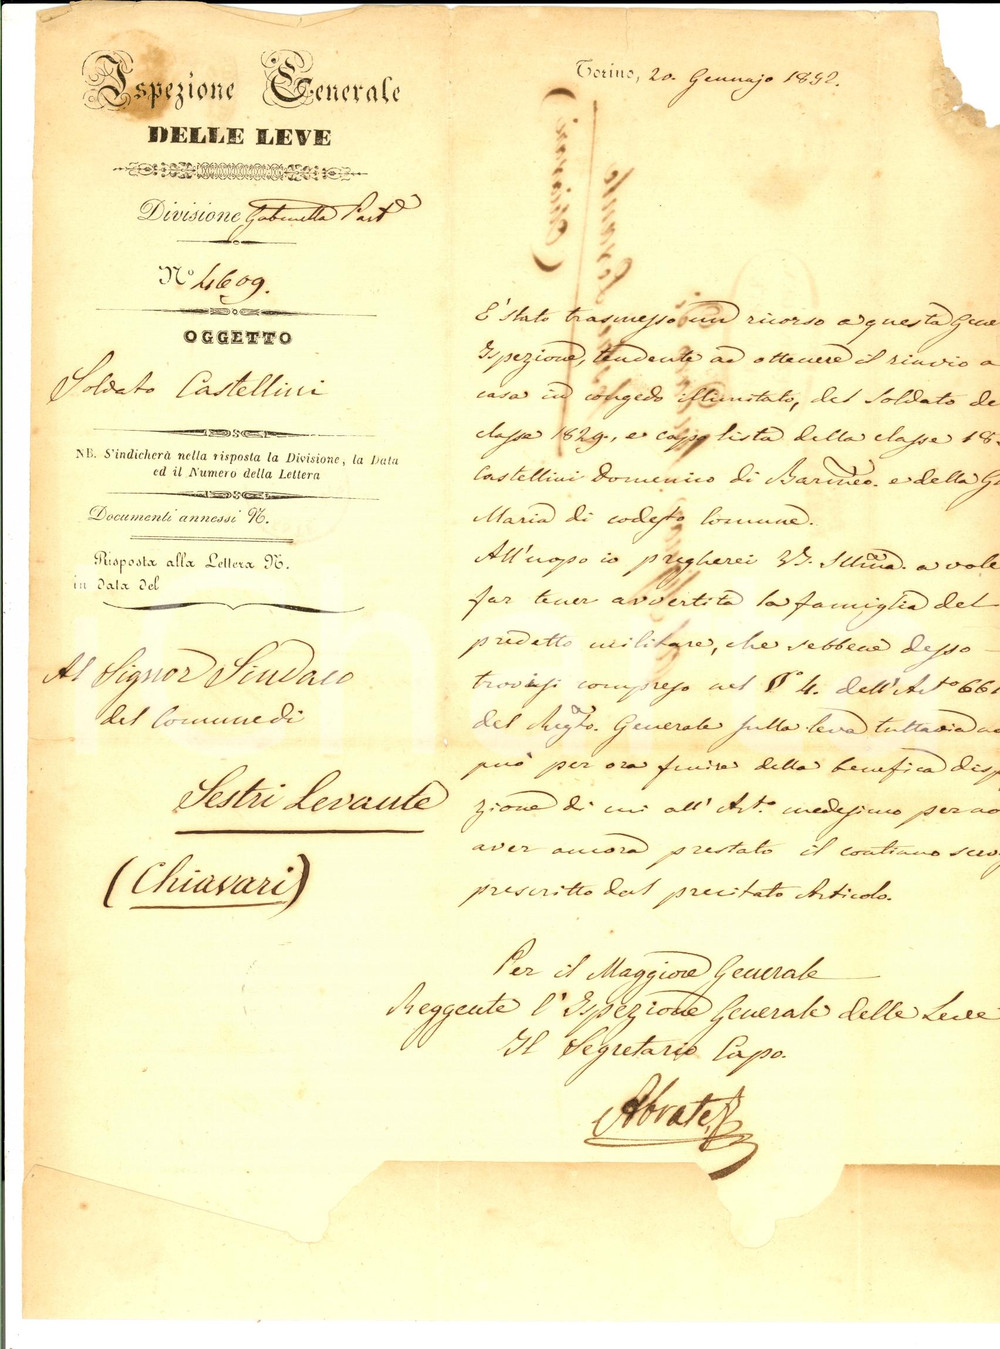 Ispezione Generale
DELLE LEVE
Divisione Gabinetto Part.
N.º 4609.
OGGETTO
Soldato Castellini
NB. S'indicherà nella risposta la Divisione, la Data
ed il Numero della Lettera
Documenti annessi N.
Risposta alla Lettera N.
in data del
Al Signor Sindaco
del Comune di
Sestri Levante
(Chiavari)
Torino, 20. Gennajo 1852.
E' stato trasmesso un ricorso a questa Gene
Ispezione, tendente ad ottenere il rinvio a
casa in congedo illimitato, del Soldato de
classe 1829, e capo lista della classe 18
Castellini Domenico di Bartmeo. e della G
Maria di codesto Comune.
All'uopo io pregherei V.S. Illma. a vole
far tener avvertita la famiglia del
predetto militare, che sebbene desso
trovisi compreso nel §º 4. dell'Artº 661
del Regto. Generale sulla leva tuttavia no
può per ora fruire della benefica disp
zione di cui all'Artº medesimo per no
aver ancora prestato il continuo serv
prescritto dal precitato Articolo.
Per il Maggiore Generale
Reggente l'Ispezione Generale delle Leve
Il Segretario Capo.
Abrate